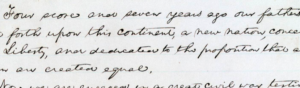 Four score and seven years ago our father
forth upon this continent, a new nation, conce
Liberty, and dedicated to the proposition that a
are created equal.
civil war, test